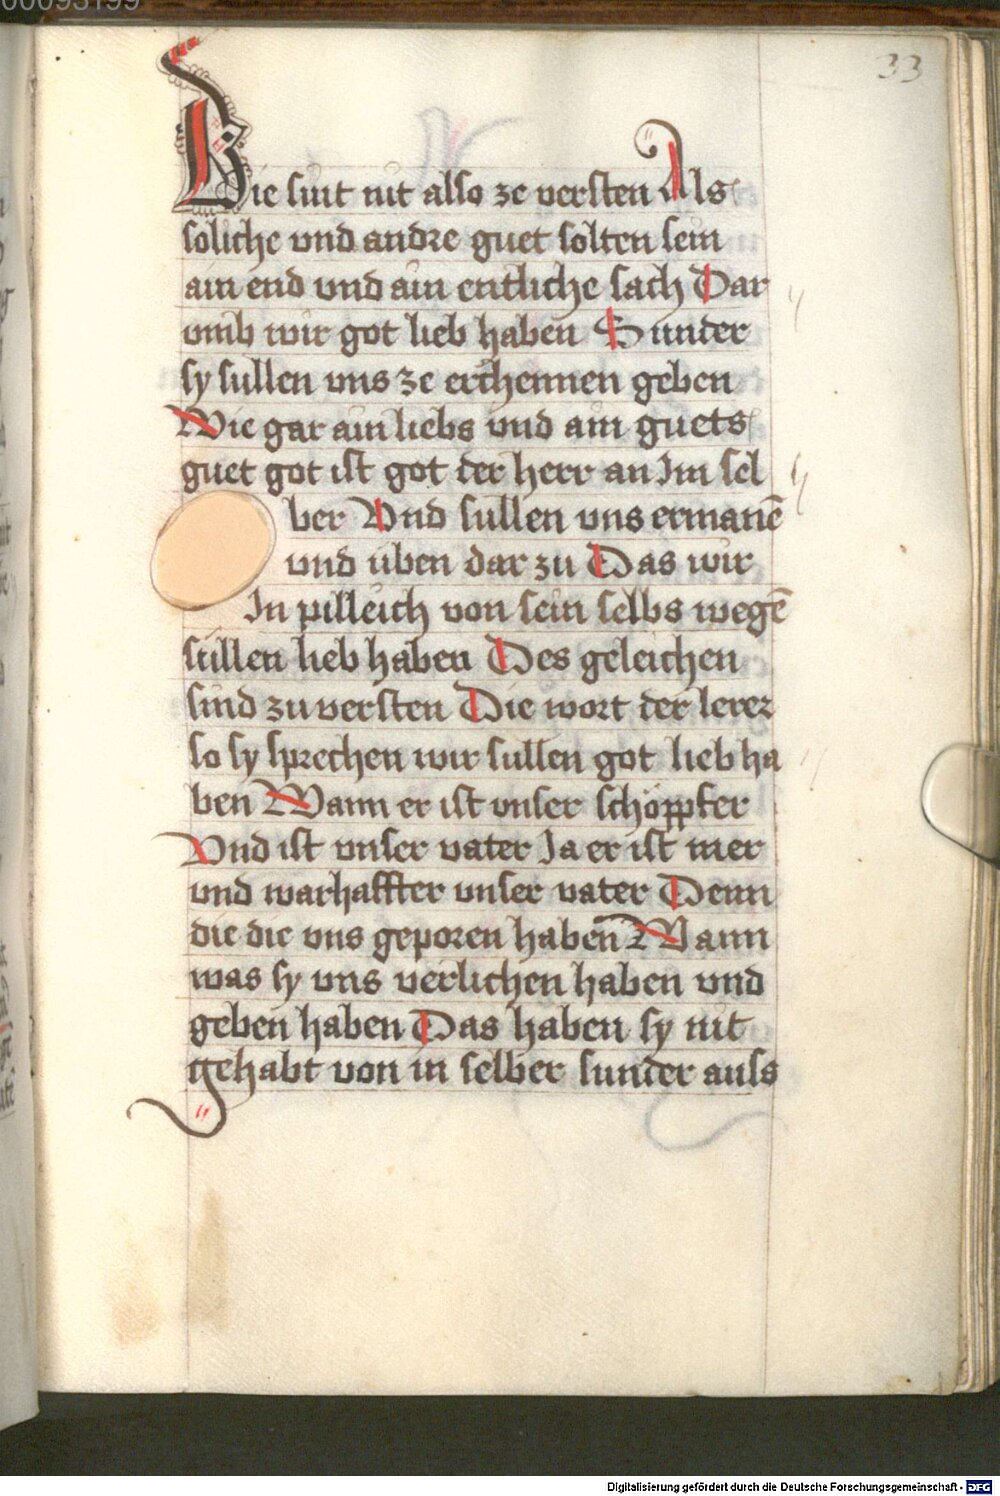 33
Die sint nit also ze versten Als
soliche vnd andre guet solten sein
ain end vnd ain entliche sach Dar
vmb wir got lieb haben Sunder
sy sullen vns ze erchennen geben
Wie gar ain liebs vnd ain guets
guet got ist got der herr an Im sel
ber Vnd sullen vns ermanē
vnd üben dar zu Das wir
In pilleich von sein selbs wegē
sullen lieb haben Des geleichen
sind zu versten Die wort der lerer
so sy sprechen wir sullen got lieb ha
ben Wann er ist vnser schöppfer
Vnd ist vnser vater Ja er ist mer
vnd warhaffter vnser vater Denn
die die vns geporen haben Wann
was sy vns verlichen haben vnd
geben haben Das haben sy nit
gehabt von in selber sunder auss
Digitalisierung gefördert durch die Deutsche Forschungsgemeinschaft - DFG